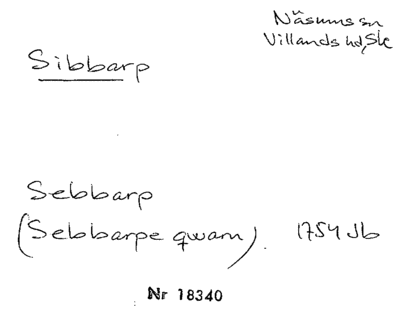 Näsums sn
Villands hd, Sk
Sibbarp
Sebbarp
(Sebbarpe qwarn). 1754 Jb
Nr 18340